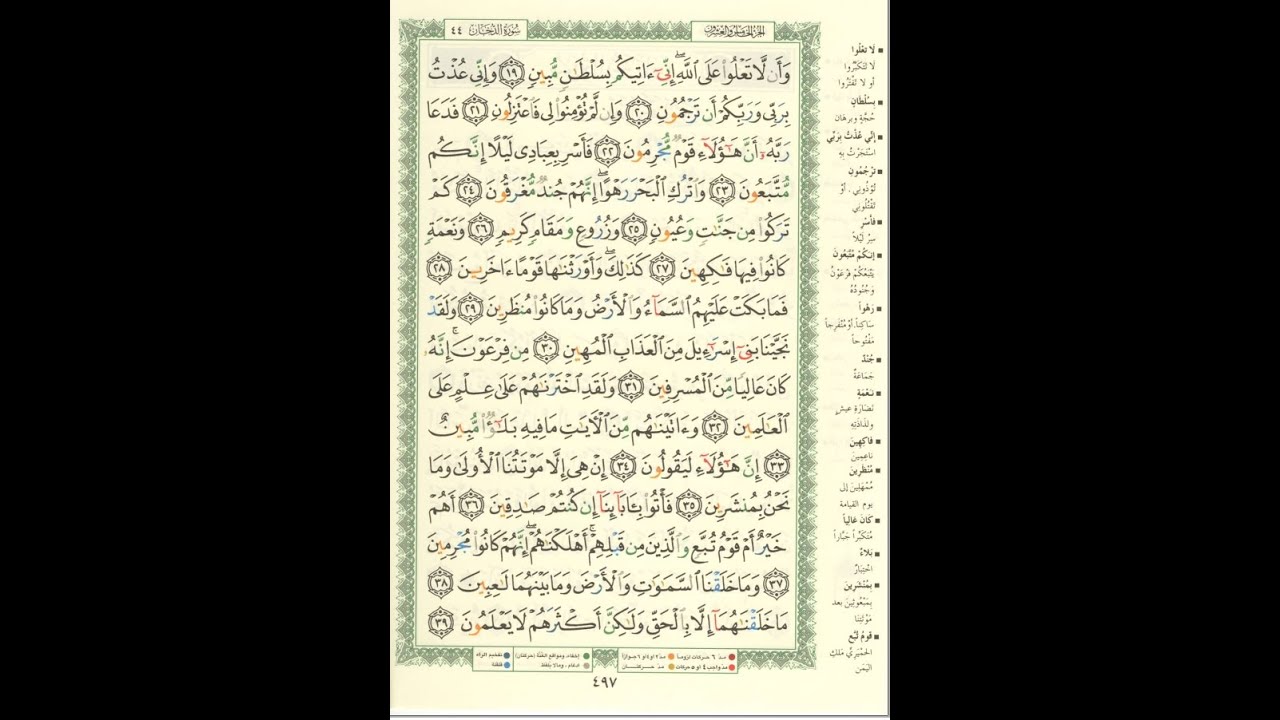 سُورَةُ الدُّخَانِ ٤٤
الجزء الخامس والعشرون
وَأَن لَّا تَعْلُوا۟ عَلَى ٱللَّهِ ۖ إِنِّىٓ ءَاتِيكُم بِسُلْطَـٰنٍ مُّبِينٍ ١٩ وَإِنِّى عُذْتُ
بِرَبِّى وَرَبِّكُمْ أَن تَرْجُمُونِ ٢٠ وَإِن لَّمْ تُؤْمِنُوا۟ لِى فَٱعْتَزِلُونِ ٢١ فَدَعَا
رَبَّهُۥٓ أَنَّ هَـٰٓؤُلَآءِ قَوْمٌ مُّجْرِمُونَ ٢٢ فَأَسْرِ بِعِبَادِى لَيْلًا إِنَّكُم
مُّتَّبَعُونَ ٢٣ وَٱتْرُكِ ٱلْبَحْرَ رَهْوًا ۖ إِنَّهُمْ جُندٌ مُّغْرَقُونَ ٢٤ كَمْ
تَرَكُوا۟ مِن جَنَّـٰتٍ وَعُيُونٍ ٢٥ وَزُرُوعٍ وَمَقَامٍ كَرِيمٍ ٢٦ وَنَعْمَةٍ
كَانُوا۟ فِيهَا فَـٰكِهِينَ ٢٧ كَذَٰلِكَ ۖ وَأَوْرَثْنَـٰهَا قَوْمًا ءَاخَرِينَ ٢٨
فَمَا بَكَتْ عَلَيْهِمُ ٱلسَّمَآءُ وَٱلْأَرْضُ وَمَا كَانُوا۟ مُنظَرِينَ ٢٩ وَلَقَدْ
نَجَّيْنَا بَنِىٓ إِسْرَٰٓءِيلَ مِنَ ٱلْعَذَابِ ٱلْمُهِينِ ٣٠ مِن فِرْعَوْنَ ۚ إِنَّهُۥ
كَانَ عَالِيًا مِّنَ ٱلْمُسْرِفِينَ ٣١ وَلَقَدِ ٱخْتَرْنَـٰهُمْ عَلَىٰ عِلْمٍ عَلَى
ٱلْعَـٰلَمِينَ ٣٢ وَءَاتَيْنَـٰهُم مِّنَ ٱلْـَٔايَـٰتِ مَا فِيهِ بَلَـٰٓؤٌا۟ مُّبِينٌ
٣٣ إِنَّ هَـٰٓؤُلَآءِ لَيَقُولُونَ ٣٤ إِنْ هِىَ إِلَّا مَوْتَتُنَا ٱلْأُولَىٰ وَمَا
نَحْنُ بِمُنشَرِينَ ٣٥ فَأْتُوا۟ بِـَٔابَآئِنَآ إِن كُنتُمْ صَـٰدِقِينَ ٣٦ أَهُمْ
خَيْرٌ أَمْ قَوْمُ تُبَّعٍ وَٱلَّذِينَ مِن قَبْلِهِمْ ۚ أَهْلَكْنَـٰهُمْ ۖ إِنَّهُمْ كَانُوا۟ مُجْرِمِينَ
٣٧ وَمَا خَلَقْنَا ٱلسَّمَـٰوَٰتِ وَٱلْأَرْضَ وَمَا بَيْنَهُمَا لَـٰعِبِينَ ٣٨
مَا خَلَقْنَـٰهُمَآ إِلَّا بِٱلْحَقِّ وَلَـٰكِنَّ أَكْثَرَهُمْ لَا يَعْلَمُونَ ٣٩
لَا تَعْلُوا
لا تتكبّروا
أو لا تَفْتَرُوا
بِسُلْطَانٍ
حُجَّةٍ وبرهان
إنِّي عُذْتُ بِرَبِّي
استَجَرْتُ بِهِ
تَرْجُمُونِ
تُؤذُونِي، أو
تَقْتُلُونِي
فَأَسْرِ
سِرْ لَيْلاً
إِنَّكُمْ مُتَّبَعُونَ
يَتْبَعُكُمْ فِرْعَوْنُ
وَجُنُودُهُ
رَهْواً
سَاكِناً، أوْ مُنْفَرِجاً
مَفْتُوحاً
جُنْدٌ
جَمَاعَةٌ
نَعْمَةٍ
نَضَارَةِ عيشٍ
ولَذَاذَتِهِ
فَاكِهِينَ
ناعِمِينَ
مُنْظَرِينَ
مُمْهَلِينَ إلى
يوم القيامة
كَانَ عَالِياً
مُتَكَبِّراً جَبَّاراً
بَلاءٌ
اختِبَارٌ
بِمُنْشَرِينَ
بِمَبْعُوثِينَ بعد
مَوْتَتِنَا
قومُ تُبَّعٍ
الحِمْيَرِيِّ مَلِكِ
اليَمَنِ
مدّ ٦ حركات لزوماً مدّ ٢ أو ٤ أو ٦ جوازاً
مدّ واجب ٤ أو ٥ حركات مدّ حركتان
إخفاء، ومواقع الغُنَّة (حركتان) تفخيم الراء
ادغام، وما لا يُلفظ قلقلة
٤٩٧